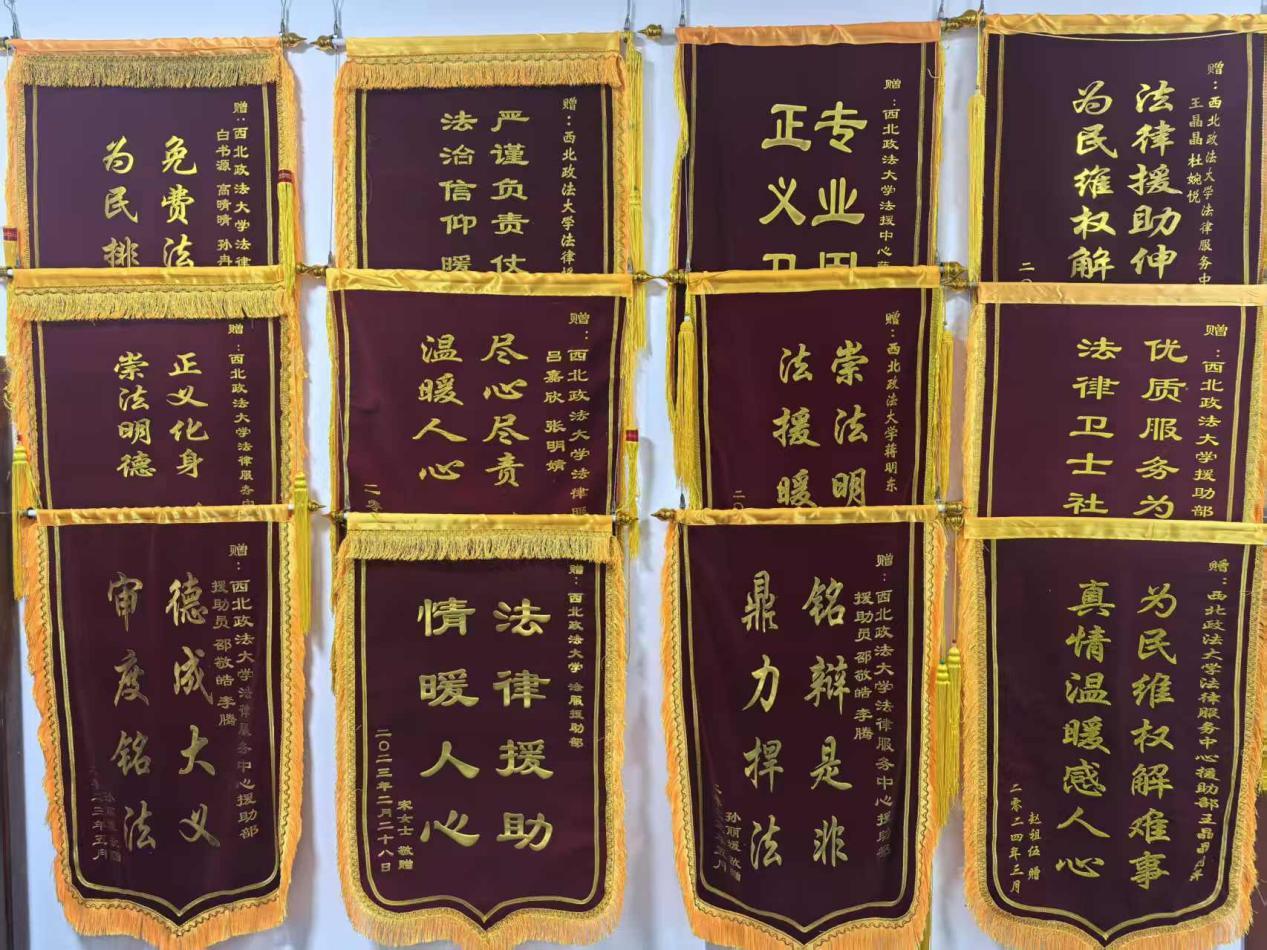 赠:西北政法大学法律
白书源 高晴晴 孙冉
免费法
为民排
赠:西北政法大学法律援
严谨负责仗
法治信仰暖
赠:西北政法大学法援中心
专业
正义卫
赠:西北政法大学法律服务中
王晶晶杜婉悦
法律援助伸
为民维权解
二〇
赠:西北政法大学法律服务
正义化身
崇法明德
赠:西北政法大学法律服
吕嘉欣 张明婧
尽心尽责
温暖人心
二零
赠:西北政法大学蒋明东
崇法明
法援暖
二〇
赠:西北政法大学援助部
优质服务为
法律卫士社
赠:西北政法大学法律服务中心援助部
援助员邵敬皓李腾
德成大义
审度铭法
年五月
赠:西北政法大学 法服援助部
法律援助
情暖人心
宋女士 敬赠
二〇二三年二月二十八日
赠:西北政法大学法律服务中心援助部
援助员邵敬皓李腾
铭辩是非
鼎力捍法
孙丽媛敬赠
赠:西北政法大学法律服务中心援助部王晶晶
为民维权解难事
真情温暖感人心
赵祖伍 赠
二零二四年三月